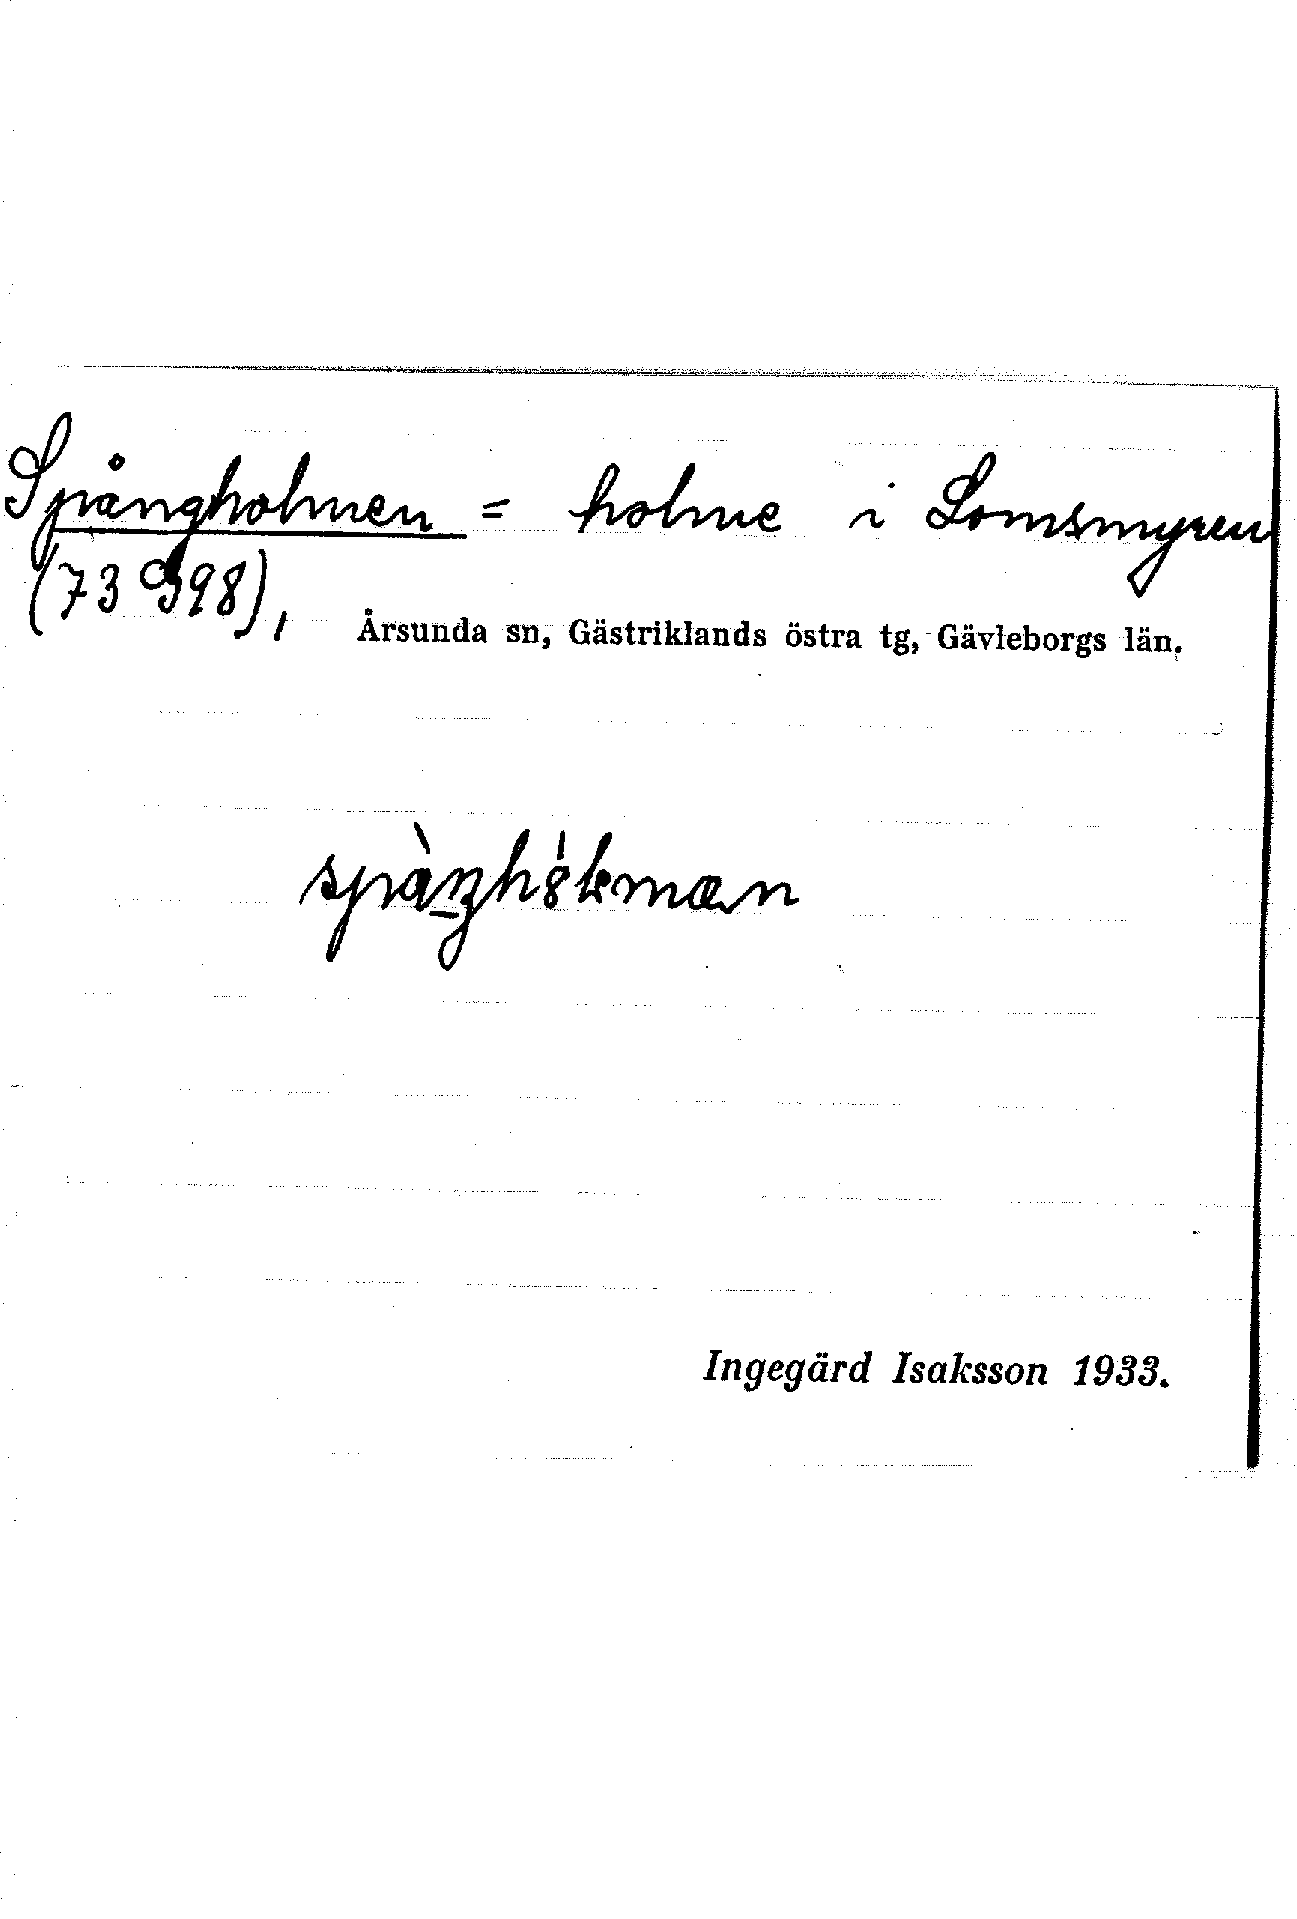 Spångholmen = holme i Lomsmyren
(73 G 98), Årsunda sn, Gästriklands östra tg, Gävleborgs län.
Ingegärd Isaksson 1933.